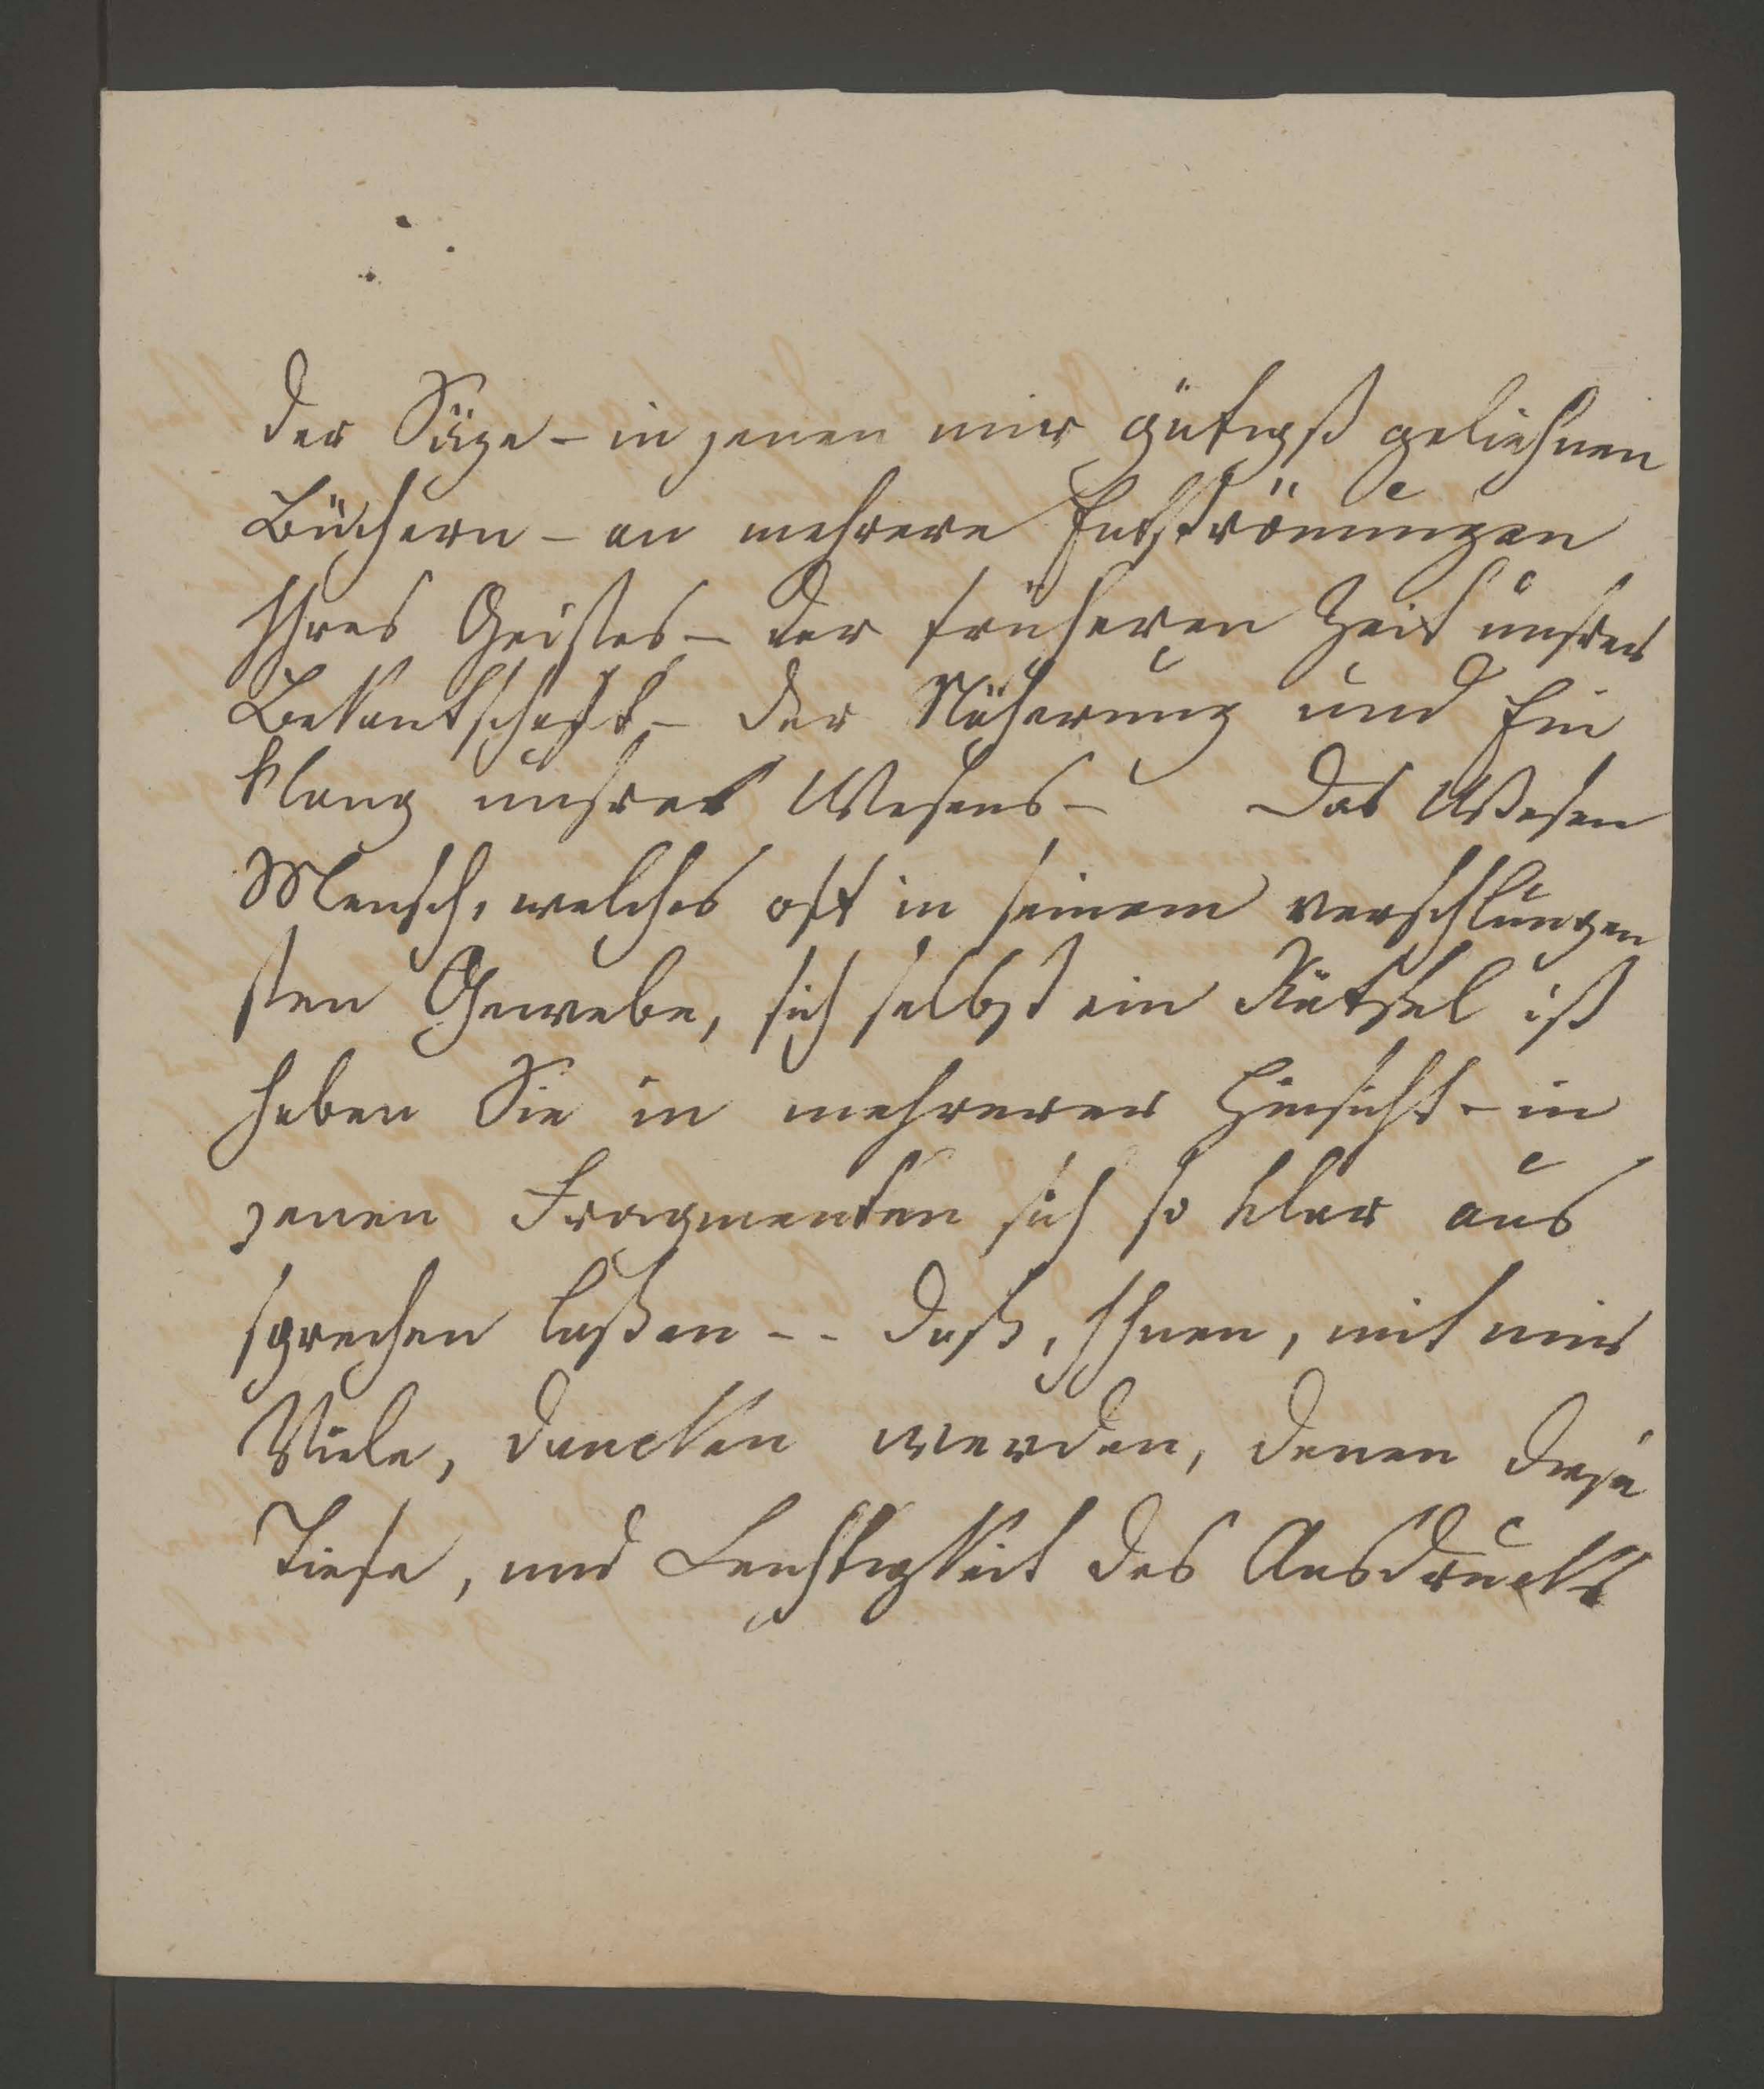 der Säze - in jenen mir gütigst geliehnen
Büchern - an mehrere Entströmungen
Ihres Geistes - der früheren Zeit unsrer
Bekantschaft - der Näherung und Ein
klang unsres Wesens - Das Wesen
Mensch, welches oft in seinem verschlungen
sten Gewebe, sich selbst ein Rätsel ist
haben Sie in mehrerer Hinsicht - in
jenen Fragmenten sich so klar aus
sprechen laßen - - daß, Ihnen, mit mir
Viele, dancken werden, denen diese
Tiefe, und Leichtigkeit des Ausdrucks